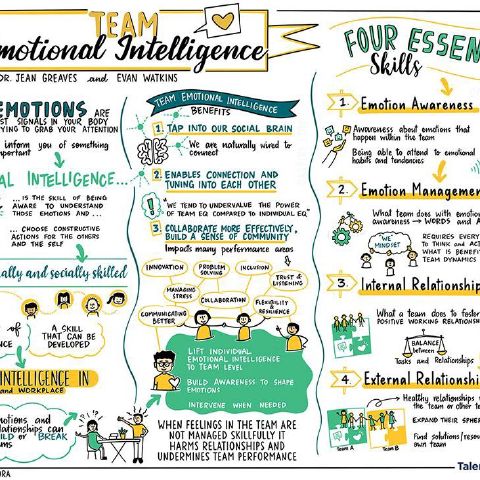 TEAM
Emotional Intelligence
DR. JEAN GREAVES and EVAN WATKINS
EMOTIONS ARE
SIGNALS IN YOUR BODY
TRYING TO GRAB YOUR ATTENTION
inform you of something
important
INTELLIGENCE...
... IS THE SKILL OF BEING
AWARE TO UNDERSTAND
THOSE EMOTIONS AND ...
... CHOOSE CONSTRUCTIVE
ACTIONS FOR THE OTHERS
AND THE SELF
and socially skilled
OF
A SKILL
THAT CAN BE
DEVELOPED
INTELLIGENCE IN
and WORKPLACE
emotions and
relationships can
BUILD or BREAK
TEAMS
TEAM EMOTIONAL INTELLIGENCE
BENEFITS
1. TAP INTO OUR SOCIAL BRAIN
We are naturally wired to
connect
2. ENABLES CONNECTION AND
TUNING INTO EACH OTHER
"WE TEND TO UNDERVALUE THE POWER
OF TEAM EQ COMPARED TO INDIVIDUAL EQ"
3. COLLABORATE MORE EFFECTIVELY,
BUILD A SENSE OF COMMUNITY
Impacts many performance areas
INNOVATION
PROBLEM
SOLVING
INCLUSION
TRUST &
LISTENING
MANAGING
STRESS
COLLABORATION
FLEXIBILITY &
RESILIENCE
COMMUNICATING
BETTER
LIFT INDIVIDUAL
EMOTIONAL INTELLIGENCE
TO TEAM LEVEL
BUILD AWARENESS TO SHAPE
EMOTIONS
INTERVENE WHEN NEEDED
WHEN FEELINGS IN THE TEAM ARE
NOT MANAGED SKILLFULLY IT
HARMS RELATIONSHIPS AND
UNDERMINES TEAM PERFORMANCE
FOUR ESSEN
Skills
1. Emotion Awareness
Awareness about emotions that
happen within the team
Being able to attend to emotional
habits and tendencies
2. Emotion Management
What team does with emotion
awareness → WORDS and A
WE
MINDSET
REQUIRES EVERY
TO THINK and AC
WHAT IS BENEFI
TEAM DYNAMICS
3. Internal Relationship
What a team does to foster
POSITIVE WORKING RELATIONSH
BALANCE
between
Tasks and Relationships
4. External Relationshi
Healthy relationships
the team or other te
EXPAND THEIR SPHER
Find solutions/resou
own team
Team A
Team B
Talen